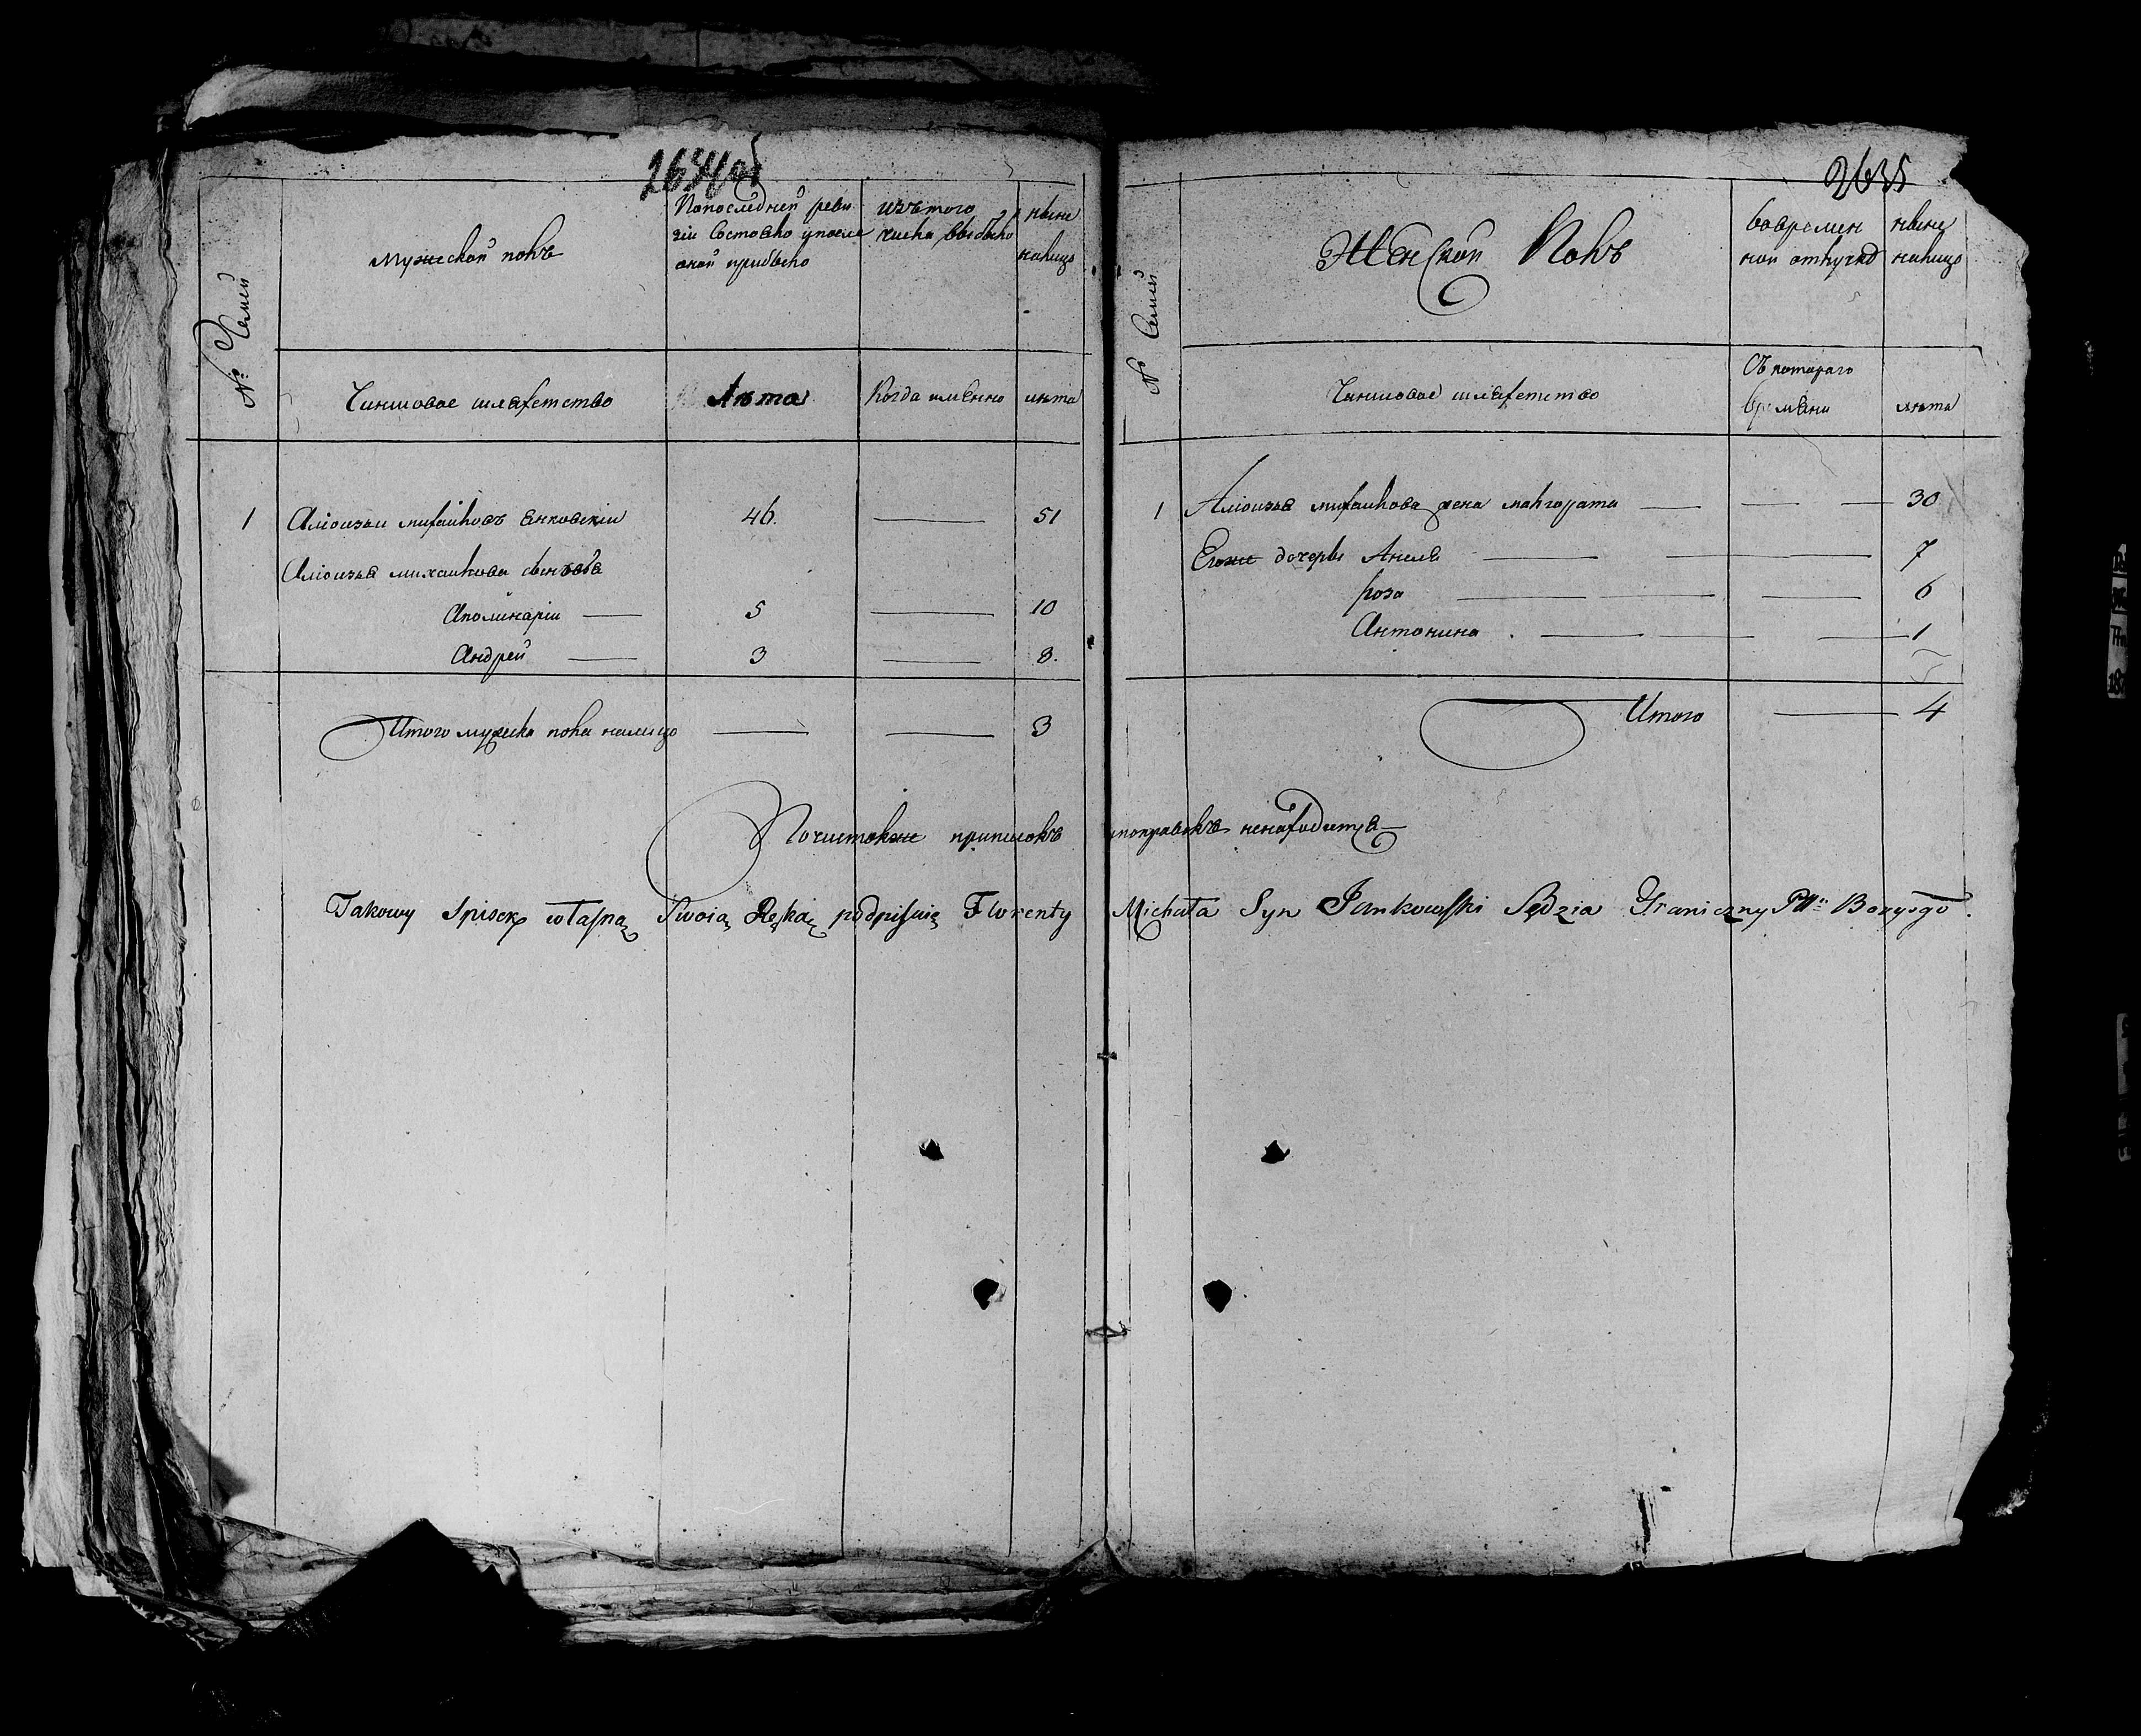 2634об
№ Семей
Мужеской полъ
Попоследней реви
зіи Состояло ипосле
оной прибыло
изътого
числа выбыло
ныне
налицо
Чиншовое шляхетство
Лѣта
Когда имянно
лѣта
1 Алїоизыи михайловъ Янковскіи 46. 51
Алїоизыя михайлова сыновья
Аполинаріи 5 10
Андрей 3 8.
Итого мужеска пола налицо 3
2635
№ Семей
Женской Полъ
вовремен
ной отлучкѣ
ныне
налицо
Чиншовое шляхетство
Съ котораго
времяни
лѣта
1 Алїоизыя михайлова жена малгората 30
Егоже дочеры Анеля 7
роза 6
Антонина 1
Итого 4
Почистокже приписокъ ипоправокъ ненаходится
Takowy Spisek własną Swoią Ręką podpisuię Florenty Michała Syn Jankowski Sędzia Graniczny Pttu Borysgo.